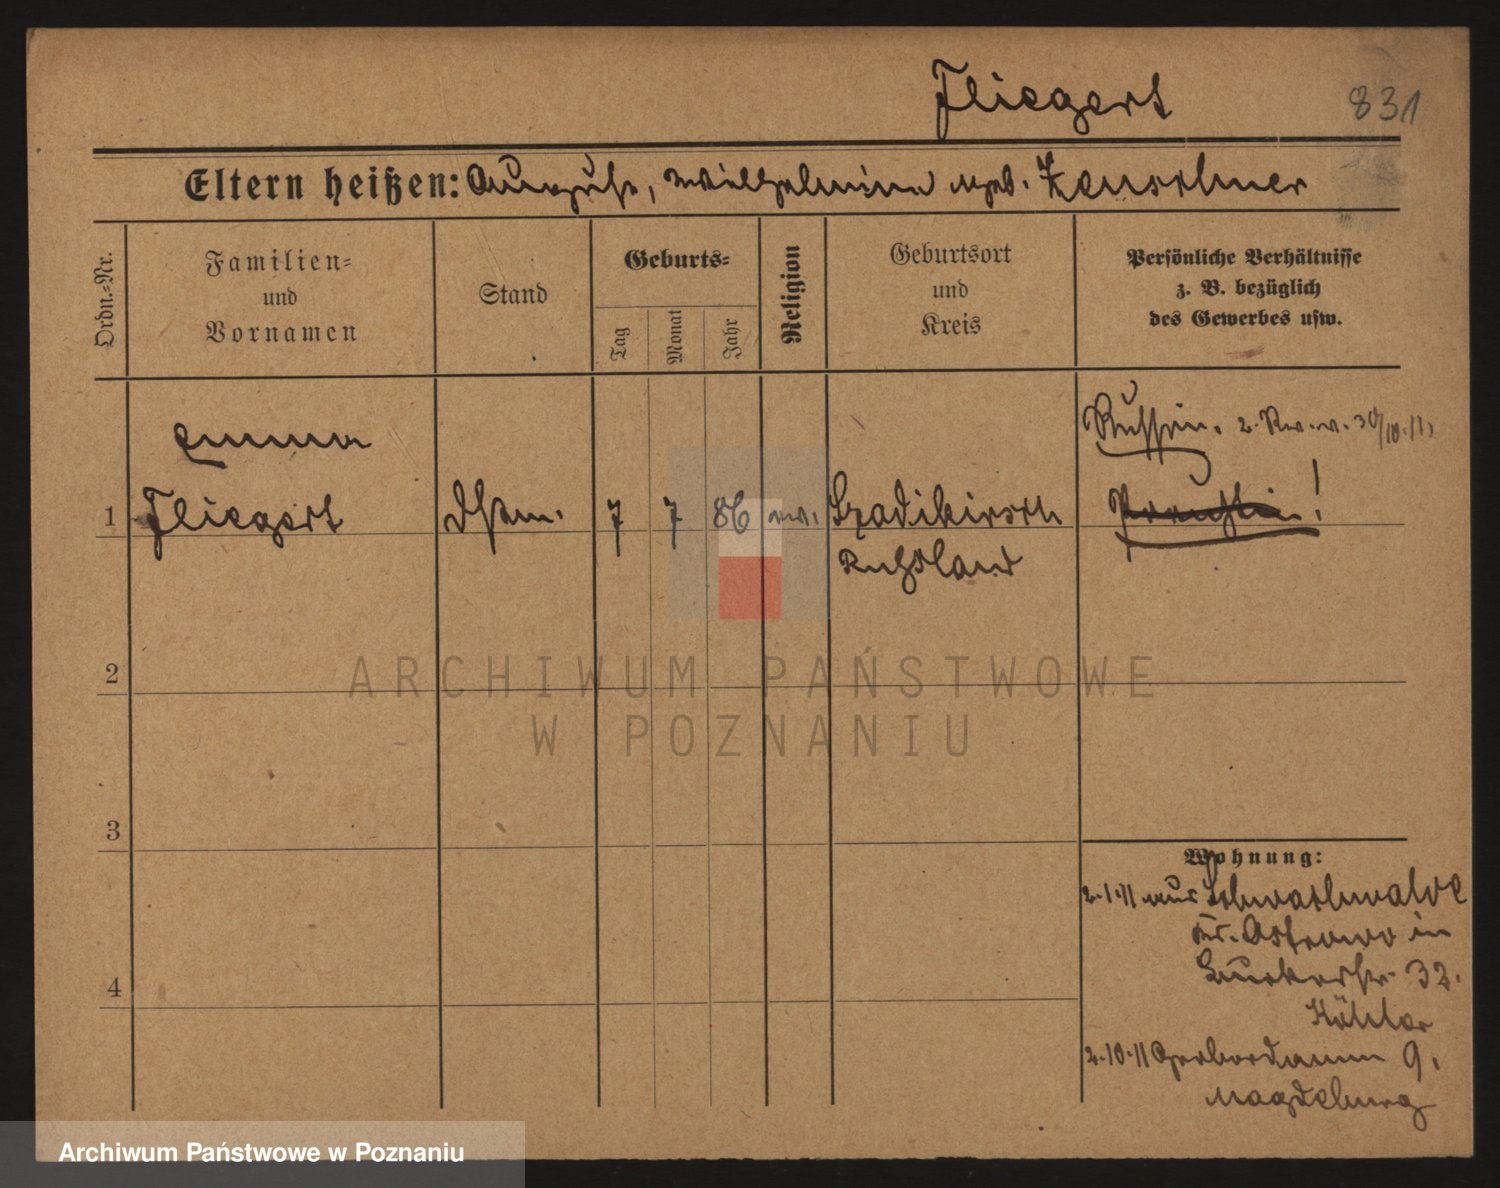 Fliegert
831
Eltern heißen: August, Wilhelmine geb. Zenschner
Ordn.-Nr.
Familien-
und
Vornamen
Stand
Geburts-
Tag
Monat
Jahr
Religion
Geburtsort
und
Kreis
Persönliche Verhältnisse
z. B. bezüglich
des Gewerbes usw.
Emma
Russin. 30/10.11,
1 Fliegert 7 7 86 ev. Szadikirsch
Preußin!
Rußland
2
3
4
Wohnung:
2.1.11 aus Schwarzwald
Kr. Ostrowo in
32.
Köhler
2.10.11 Gerberdamm 9,
Magdeburg
ARCHIWUM PAŃSTWOWE
W POZNANIU
Archiwum Państwowe w Poznaniu